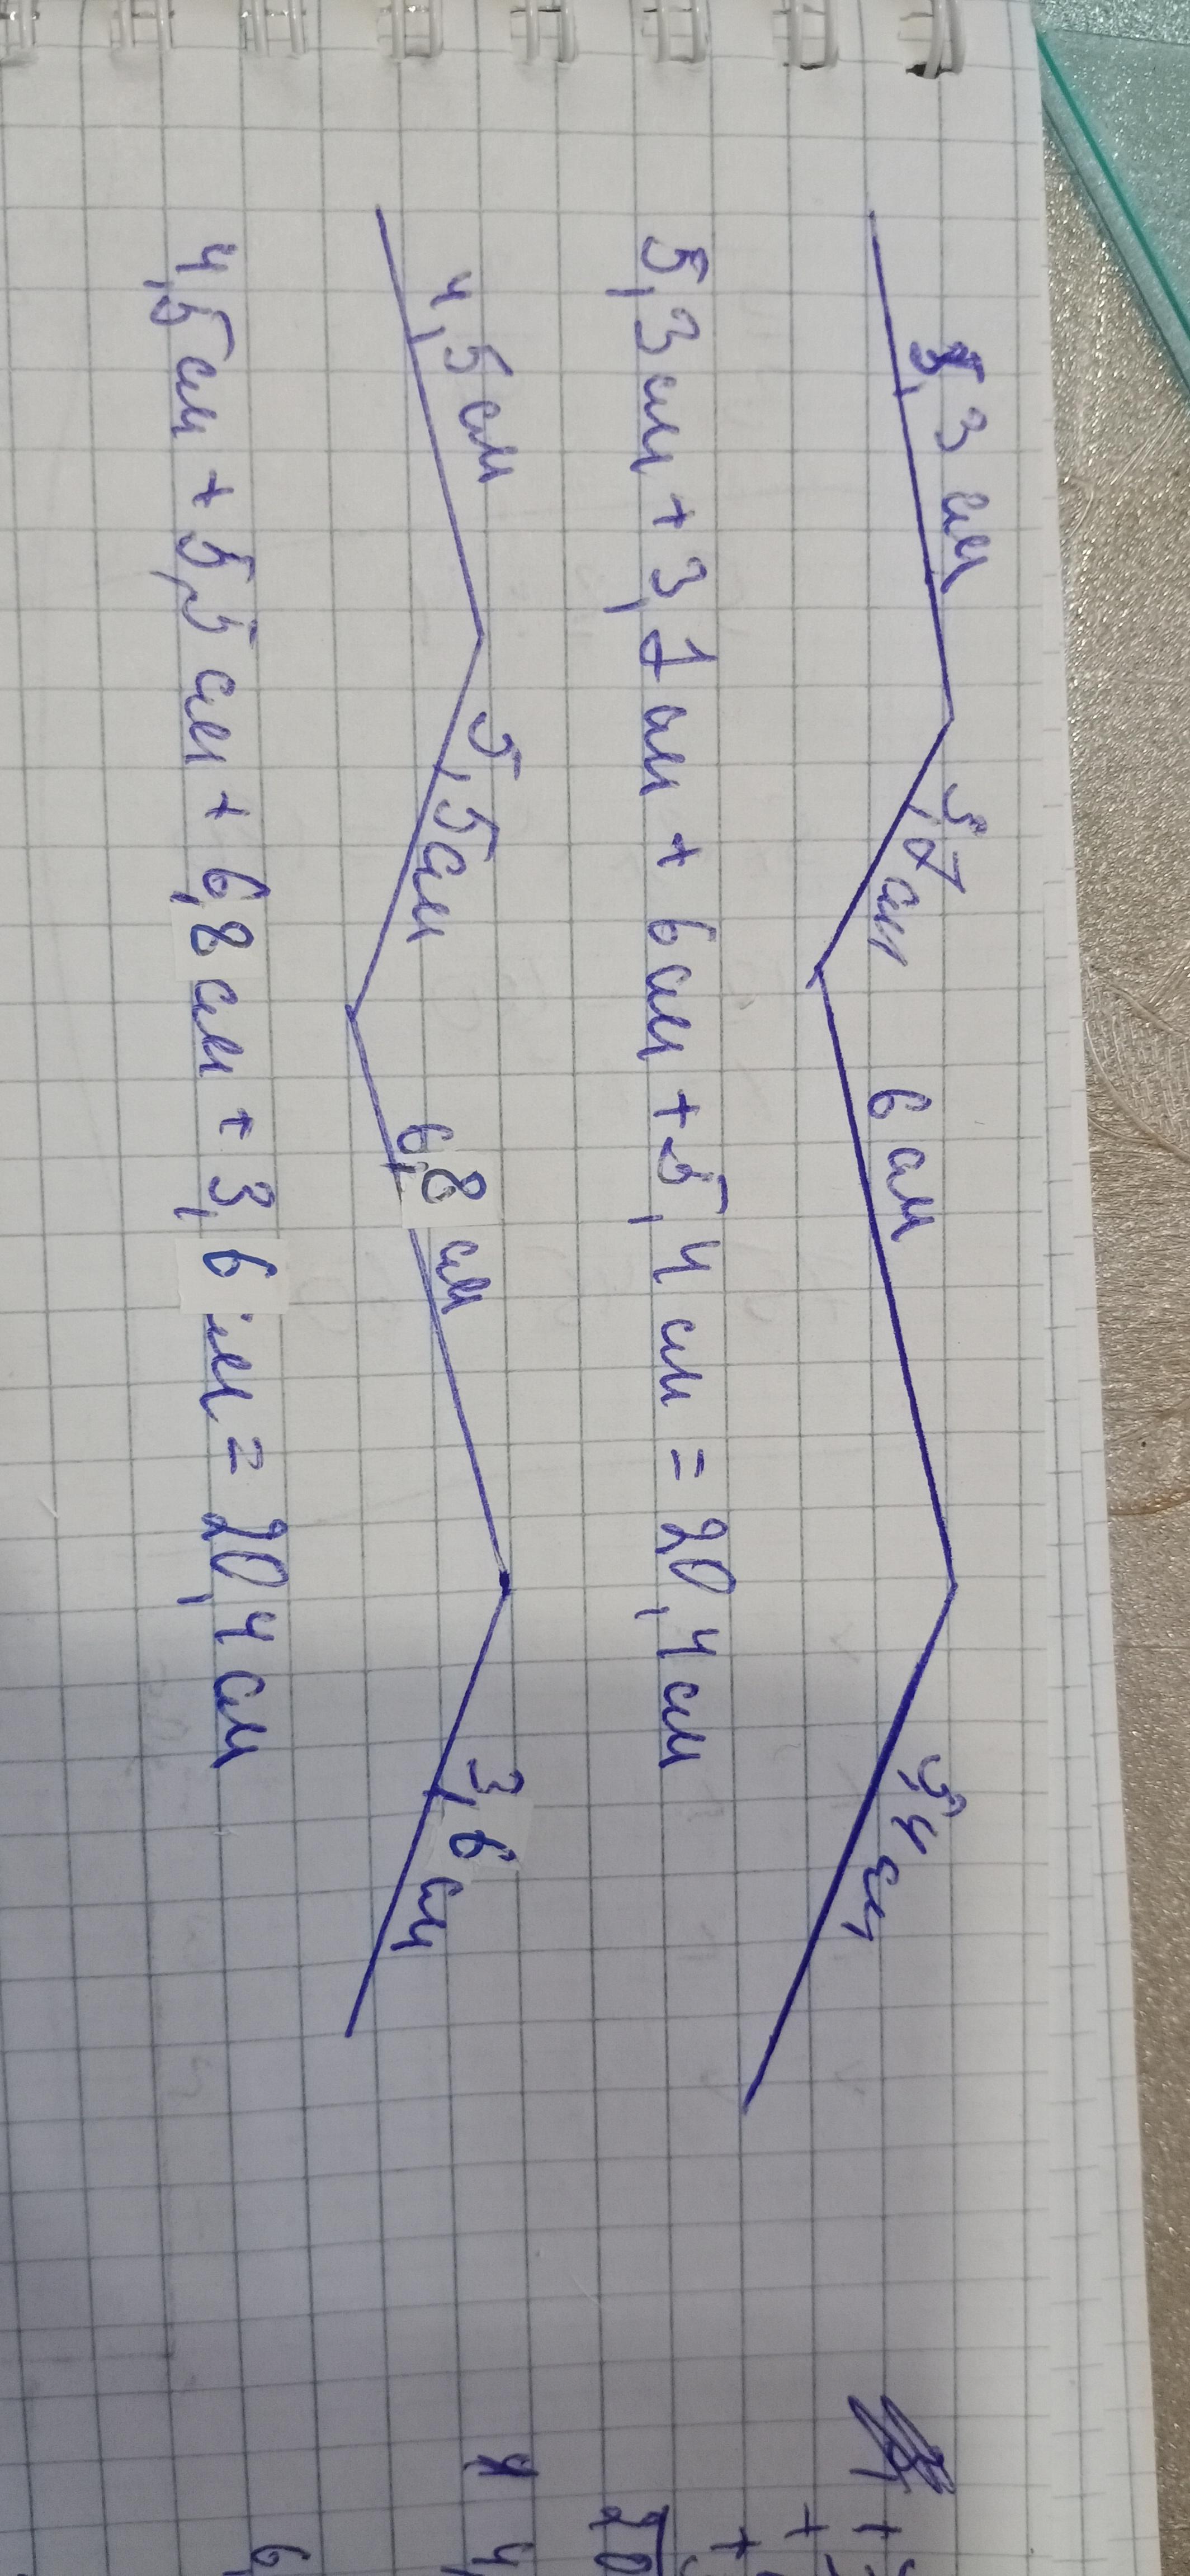 5,3 см 3,7 см 6 см 5,4 см
5,3 см + 3,7 см + 6 см + 5,4 см = 20,4 см
4,5 см 5,5 см 6,8 см 3,6 см
4,5 см + 5,5 см + 6,8 см + 3,6 см = 20,4 см